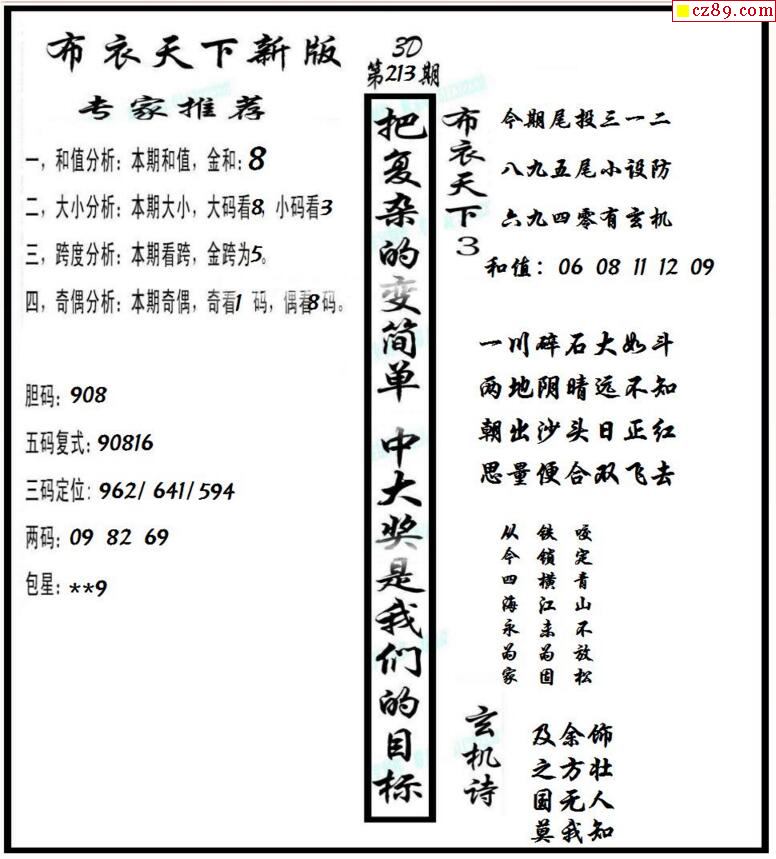 cz89.com
布衣天下新版
专家推荐
一，和值分析：本期和值，金和：8
二，大小分析：本期大小，大码看8，小码看3
三，跨度分析：本期看跨，金跨为5。
四，奇偶分析：本期奇偶，奇看1 码，偶看8码。
胆码：908
五码复式：90816
三码定位：962/ 641/594
两码：09 82 69
包星：**9
3D
第213期
把复杂的变简单 中大奖是我们的目标
布衣天下3
今期尾投三一二
八九五尾小设防
六九四零有玄机
和值：06 08 11 12 09
一川碎石大如斗
两地阴晴远不知
朝出沙头日正红
思量便合双飞去
咬定青山不放松
铁锁横江未为固
从今四海永为家
玄机诗
及余饰
之方壮
国无人
莫我知